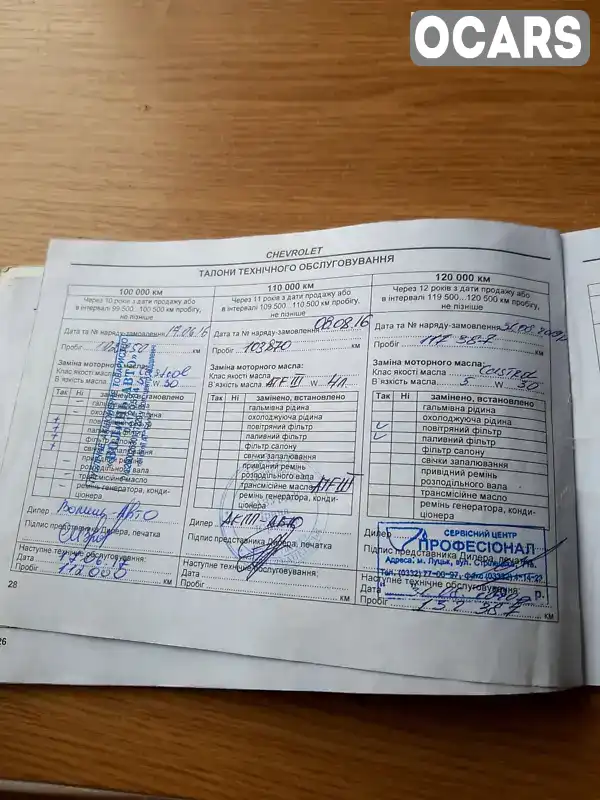 OCARS
CHEVROLET
ТАЛОНИ ТЕХНІЧНОГО ОБСЛУГОВУВАННЯ
100 000 км
Через 10 років з дати продажу або
в інтервалі 99 500...100 500 км пробігу,
не пізніше
Дата та № наряду-замовлення 17.06.16
Пробіг км
Заміна моторного масла:
Клас якості масла
В`язкість масла 5 W 30
Так Ні замінено, встановлено
гальмівна рідина
охолоджуюча рідина
повітряний фільтр
паливний фільтр
фільтр салону
свічки запалювання
привідний ремінь
розподільного вала
трансмісійне масло
ремінь генератора, конди-
ціонера
Дилер Волинь Авто
Підпис представника Дилера, печатка
Наступне технічне обслуговування:
Дата
Пробіг 112000 км
28
110 000 км
Через 11 років з дати продажу або
в інтервалі 109 500...110 500 км пробігу,
не пізніше
Дата та № наряду-замовлення 09.08.16
Пробіг 103870 км
Заміна моторного масла:
Клас якості масла
В`язкість масла ATF III W 4л
Так Ні замінено, встановлено
гальмівна рідина
охолоджуюча рідина
повітряний фільтр
паливний фільтр
фільтр салону
свічки запалювання
привідний ремінь
розподільного вала
трансмісійне масло ATF III
ремінь генератора, конди-
ціонера
Дилер
Підпис представника Дилера, печатка
Наступне технічне обслуговування:
Дата
Пробіг км
120 000 км
Через 12 років з дати продажу або
в інтервалі 119 500...120 500 км пробігу,
не пізніше
Дата та № наряду-замовлення
Пробіг 117 387 км
Заміна моторного масла:
Клас якості масла Castrol
В`язкість масла 5 W 30
Так Ні замінено, встановлено
гальмівна рідина
охолоджуюча рідина
повітряний фільтр
паливний фільтр
фільтр салону
свічки запалювання
привідний ремінь
розподільного вала
трансмісійне масло
ремінь генератора, конди-
ціонера
Дилер
СЕРВІСНИЙ ЦЕНТР
ПРОФЕСІОНАЛ
Підпис представника Дилера, печатка
Адреса: м. Луцьк, вул.
Наступне технічне обслуговування:
Дата р.
Пробіг 132 387 км
26